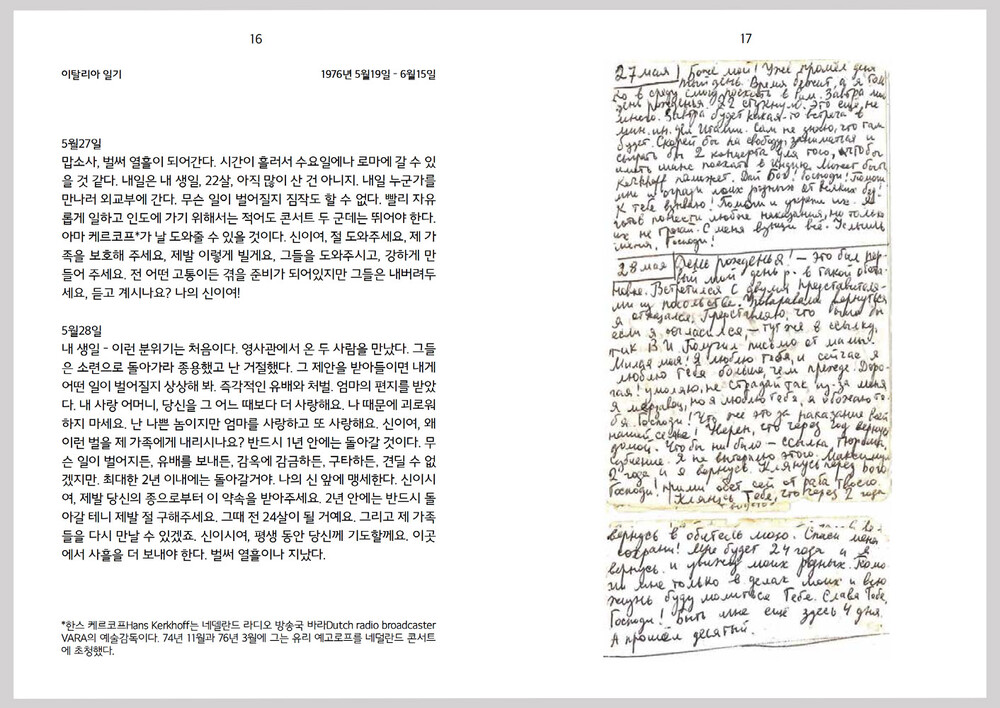 16
이탈리아 일기 1976년 5월19일 - 6월15일
5월27일
맙소사, 벌써 열흘이 되어간다. 시간이 흘러서 수요일에나 로마에 갈 수 있
을 것 같다. 내일은 내 생일, 22살, 아직 많이 산 건 아니지. 내일 누군가를
만나러 외교부에 간다. 무슨 일이 벌어질지 짐작도 할 수 없다. 빨리 자유
롭게 일하고 인도에 가기 위해서는 적어도 콘서트 두 군데는 뛰어야 한다.
아마 케르코프*가 날 도와줄 수 있을 것이다. 신이여, 절 도와주세요, 제 가
족을 보호해 주세요, 제발 이렇게 빌게요, 그들을 도와주시고, 강하게 만
들어 주세요. 전 어떤 고통이든 겪을 준비가 되어있지만 그들은 내버려두
세요, 듣고 계시나요? 나의 신이여!
5월28일
내 생일 - 이런 분위기는 처음이다. 영사관에서 온 두 사람을 만났다. 그들
은 소련으로 돌아가라 종용했고 난 거절했다. 그 제안을 받아들이면 내게
어떤 일이 벌어질지 상상해 봐. 즉각적인 유배와 처벌. 엄마의 편지를 받았
다. 내 사랑 어머니, 당신을 그 어느 때보다 더 사랑해요. 나 때문에 괴로워
하지 마세요. 난 나쁜 놈이지만 엄마를 사랑하고 또 사랑해요. 신이여, 왜
이런 벌을 제 가족에게 내리시나요? 반드시 1년 안에는 돌아갈 것이다. 무
슨 일이 벌어지든, 유배를 보내든, 감옥에 감금하든, 구타하든, 견딜 수 없
겠지만. 최대한 2년 이내에는 돌아갈거야. 나의 신 앞에 맹세한다. 신이시
여, 제발 당신의 종으로부터 이 약속을 받아주세요. 2년 안에는 반드시 돌
아갈 테니 제발 절 구해주세요. 그때 전 24살이 될 거예요. 그리고 제 가족
들을 다시 만날 수 있겠죠. 신이시여, 평생 동안 당신께 기도할께요. 이곳
에서 사흘을 더 보내야 한다. 벌써 열흘이나 지났다.
*한스 케르코프Hans Kerkhoff는 네델란드 라디오 방송국 바라Dutch radio broadcaster
VARA의 예술감독이다. 74년 11월과 76년 3월에 그는 유리 예고로프를 네덜란드 콘서트
에 초청했다.
17
27 мая Боже мой! Уже прошёл
день. Время бежит, а я толь
ко в среду смогу поехать в Рим. Завтра мой
день рожденья. 22 стукнул. Это ещё не
много. Завтра будет какая-то встреча в
мин. ин. дел Италии. Сам не знаю, что там
будет. Скорей бы на свободу, заниматься и
сыграть бы 2 концерта для того, чтобы
иметь шанс поехать в Индию. Может быть
Kerkhoff поможет. Дай Бог! Господи! Помоги
мне и огради моих родных от всяких бед!
К тебе взываю! Помоги и укрепи их. Я
готов понести любое наказание, но только
их не трогай. С меня взыщи всё. Услышь
меня, Господи!
28 мая День рожденья! - это был пер
вый мой день р. в такой обста
новке. Встретился с двумя представителя-
ми из посольства. Уговаривали вернуться
я отказался. Представляю, что было бы
если я согласился - тут же в ссылку,
Получил письмо от мамы.
Милая моя! Я люблю тебя, и сейчас я
люблю тебя больше, чем прежде. Доро-
гая! умоляю, не страдай так из-за меня
Я мерзавец, но я люблю тебя, я обожаю те-
бя. Господи! Что же это за наказание всей
нашей семье! Уверен, что через год вернусь
домой. Что бы ни было - ссылка, тюрьма,
избиение. Я не выдержу этого. Максимум
2 года и я вернусь. Клянусь перед Бого
Господи! прими обет сей от раба Твоего.
Клянусь Тебе, что через 2 года
вернусь в обитель мою. Спаси меня
сохрани! Мне будет 24 года и я
вернусь и увижу моих родных. Помо
ги мне только в делах моих и всю
жизнь буду молиться Тебе. Слава Тебе,
Господи! Быть мне ещё здесь 4 дня.
А прошёл десятый.